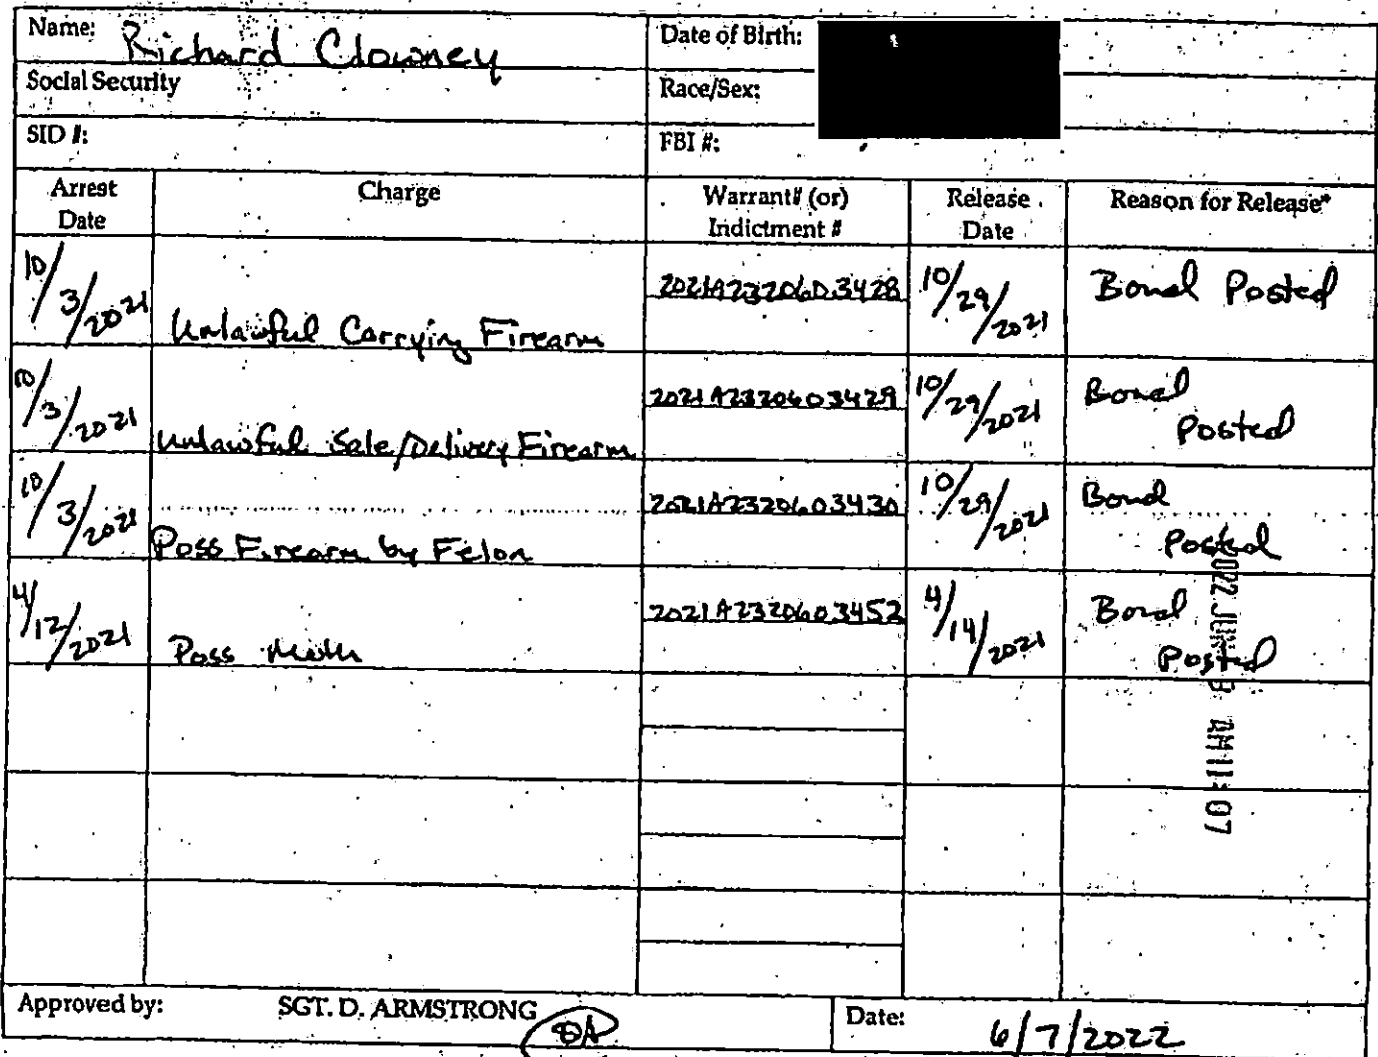 Name: Richard Clowney
Date of Birth:
Social Security
Race/Sex:
SID #:
FBI #:
Arrest Date
Charge
Warrant# (or) Indictment #
Release Date
Reason for Release*
10/3/2021 Unlawful Carrying Firearm 2021A2320603428 10/29/2021 Bond Posted
10/3/2021 Unlawful Sale/Delivery Firearm 2021A2320603429 10/29/2021 Bond Posted
10/3/2021 Poss Firearm by Felon 2021A2320603430 10/29/2021 Bond Posted
4/12/2021 Poss Meth 2021A2320603452 4/14/2021 Bond Posted
AM 11:07
Approved by: SGT. D. ARMSTRONG DA
Date: 6/7/2022